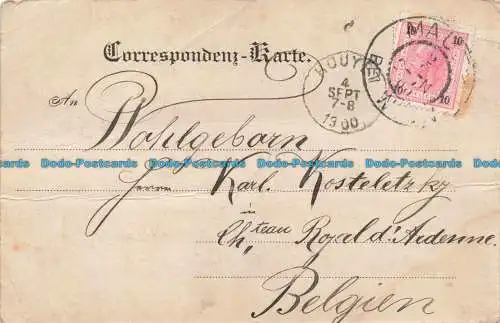 Correspondenz-Karte.
10 10
10
MAL
HOUYET
4
SEPT
7-8
1900
An
Wohlgeborn
Herrn Karl Kosteletzky
in
Ch,,teau Royal d'Ardenne.
Belgien
Dodo-Postcards Dodo-Postcards Dodo-Postcards Dodo-Postcards Dodo-Postcards Dodo-Postcards